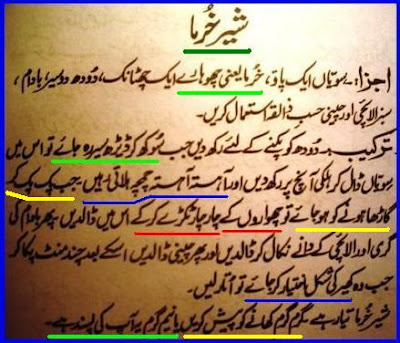 شیر خُرما
اجزا:۔ سویّاں ایک پاؤ، خُرما یعنی چھوہارے ایک چھٹانک، دُودھ دو سیر، بادام،
سبز الائچی اور چینی حسب ذائقہ استعمال کریں۔
ترکیب:۔ دودھ کو پکنے کے لئے رکھ دیں جب سُوکھ کر ڈیڑھ سیر رہ جائے تو اس میں
سویّاں ڈال کر ہلکی آنچ پر رکھ دیں اور آہستہ آہستہ چمچہ ہلاتی رہیں۔ جب پک پک کر
گاڑھا ہونے کو ہو جائے تو چھواروں کے چار چار ٹکڑے کر کے اس میں ڈالدیں۔ پھر بادام کی
گری اور الائچی کے دانے نکال کر ڈالدیں اور پھر چینی ڈالدیں اسکے بعد چند منٹ پکا کر
جب وہ کھیر کی شکل اختیار کر جائے تو اُتار لیں۔
شیر خُرما تیار ہے۔ گرم گرم کھانے کو پیش کریں یا نیم گرم یہ آپ کی پسند ہے۔